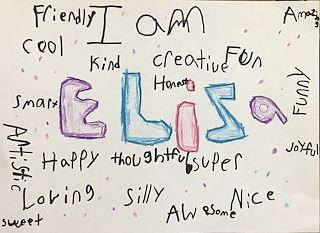 Friendly I am Amazing
cool
Kind creative Fun
Honest
Smart ELiza Funny
Artistic
Happy thoughtful super Joyful
Loving Silly
Awesome Nice
sweet